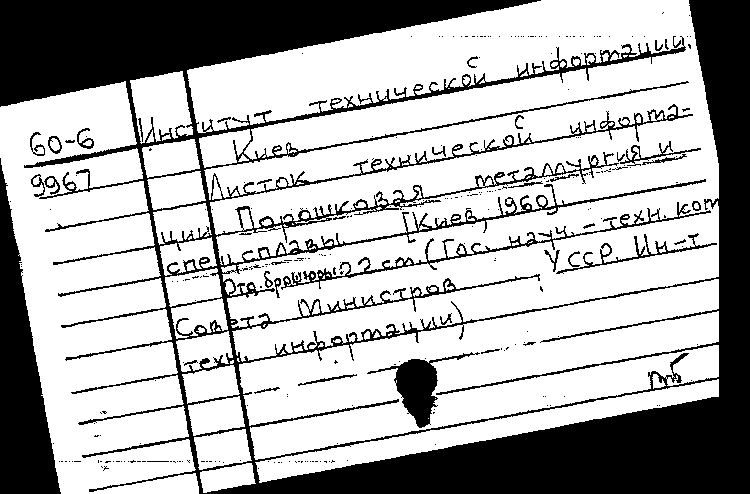 60-6 Институт технической информации.
9967 Киев
Листок технической информа=
ции. Порошковая металлургия и
спец.сплавы. [Киев, 1960].
Отд.брошюры. 22 см. (Гос. науч.-техн. ком
Совета Министров УССР. Ин-т
техн. информации)